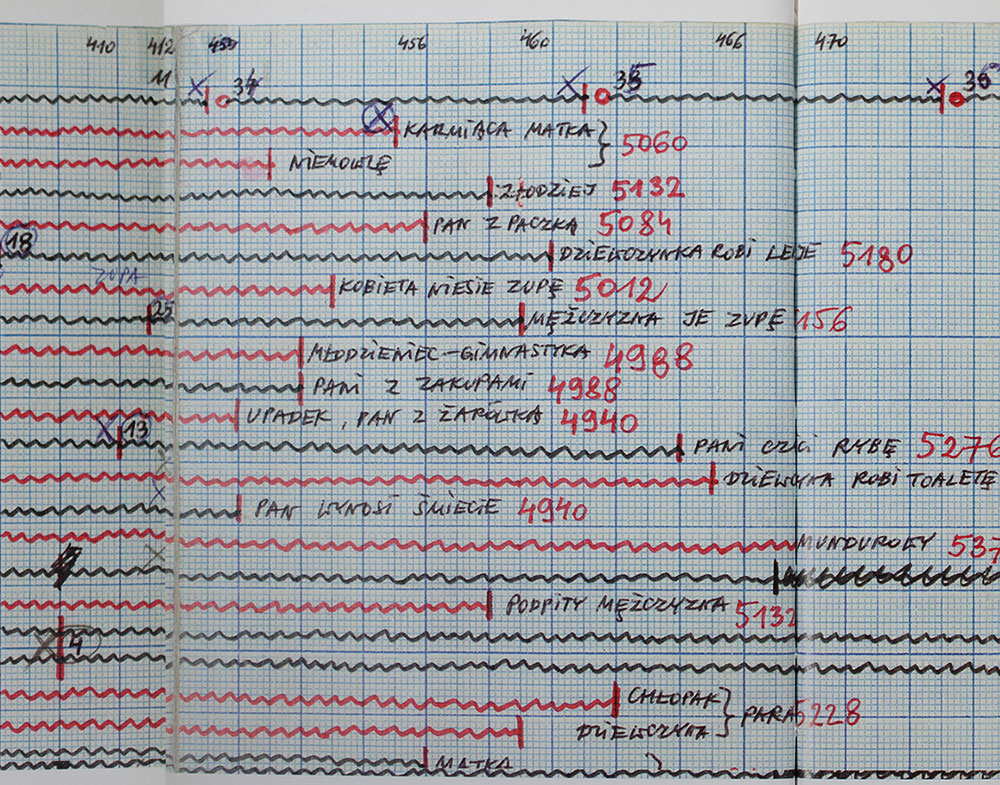 410 412 455 456 460 466 470
11 X 34 X 35 X 36
X KARMIĄCA MATKA } 5060
NIEMOWLĘ
ZŁODZIEJ 5132
PAN Z PACZKĄ 5084
18 DZIEWCZYNKA ROBI LEKCJE 5180
ZUPA
KOBIETA NIESIE ZUPĘ 5012
25 MĘŻCZYZNA JE ZUPĘ 156
MŁODZIENIEC-GIMNASTYKA 4988
PANI Z ZAKUPAMI 4988
UPADEK, PAN Z ŻARÓWKĄ 4940
X 13 PANI RYBĘ 5276
DZIEWCZYNA ROBI TOALETĘ
X PAN WYNOSI ŚMIECIE 4940
MUNDUROWY 537
X
PODPITY MĘŻCZYZNA 5132
X 4
CHŁOPAK } PARA 5228
DZIEWCZYNA
MATKA }